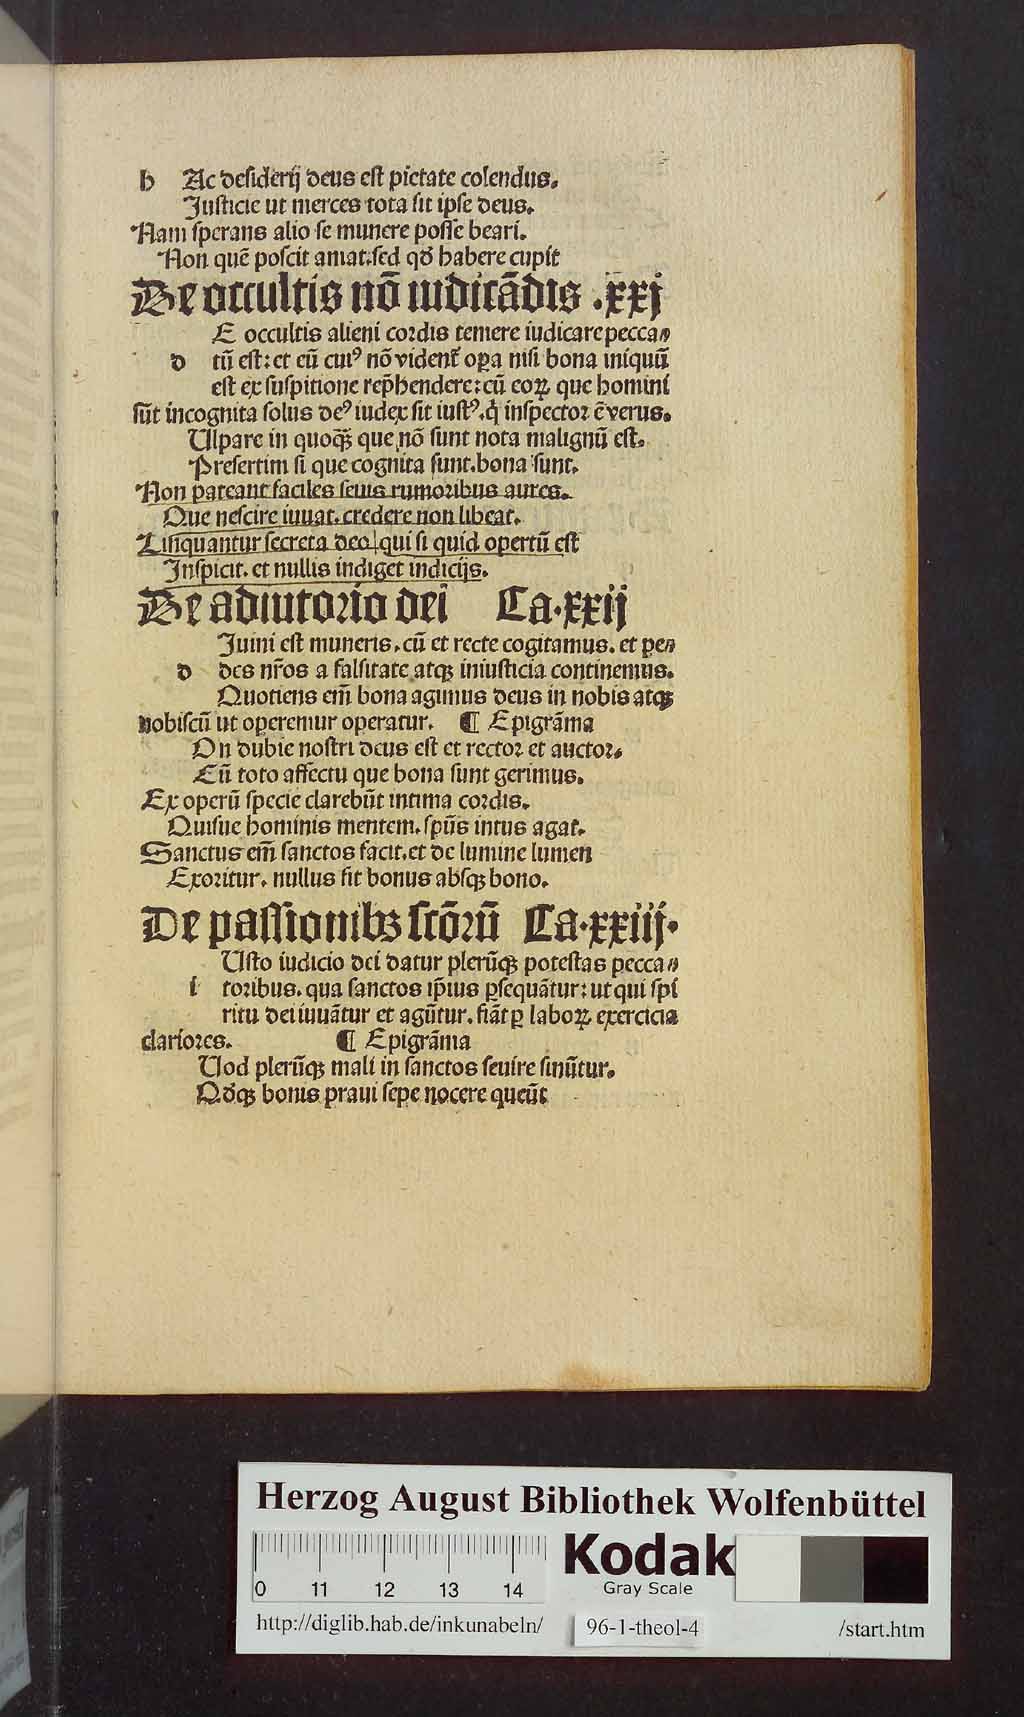 h Ac desiderij deus est pietate colendus.
Justicie ut merces tota sit ipse deus.
Nam sperans alio se munere posse beari.
Non quē poscit amat. sed qd̄ habere cupit
De occultis nō iudicādis .xxj
E occultis alieni cordis temere iudicare pecca⸗
d tū est: et eū cuiꝰ nō vident᷑ oꝑa nisi bona iniquū
est ex suspitione rep̄hendere: cū eoꝝ que homini
sūt incognita solus deꝰ iudex sit iustꝰ. q̇ inspector ē verus.
Ulpare in quoqꝫ que nō sunt nota malignū est.
Presertim si que cognita sunt. bona sunt.
Non pateant faciles seuis rumoribus aures.
Que nescire iuuat. credere non libeat.
Linquantur secreta deo qui si quid opertū est
Inspicit. et nullis indiget indicijs.
De adiutorio dei Ca.xxij
Juini est muneris. cū et recte cogitamus. et pe⸗
d des nr̄os a falsitate atqꝫ iniusticia continemus.
Quotiens em̄ bona agimus deus in nobis atqꝫ
nobiscū ut operemur operatur. ¶ Epigrāma
On dubie nostri deus est et rector et auctor.
Cū toto affectu que bona sunt gerimus.
Ex operū specie clarebūt intima cordis.
Quisue hominis mentem. spūs intus agat.
Sanctus em̄ sanctos facit. et de lumine lumen
Exoritur. nullus fit bonus absqꝫ bono.
De passionibꝫ sctōrū Ca.xxiij.
Usto iudicio dei datur plerūqꝫ potestas pecca⸗
i toribus. qua sanctos ip̄ius ꝑsequātur: ut qui spi
ritu dei iuuātur et agūtur. fiāt ꝑ laboꝝ exercicia
clariores. ¶ Epigrāma
Uod plerūqꝫ mali in sanctos seuire sinūtur.
Qd̄qꝫ bonis praui sepe nocere queūt
Herzog August Bibliothek Wolfenbüttel
Kodak
Gray Scale
0 11 12 13 14
http://diglib.hab.de/inkunabeln/ 96-1-theol-4 /start.htm